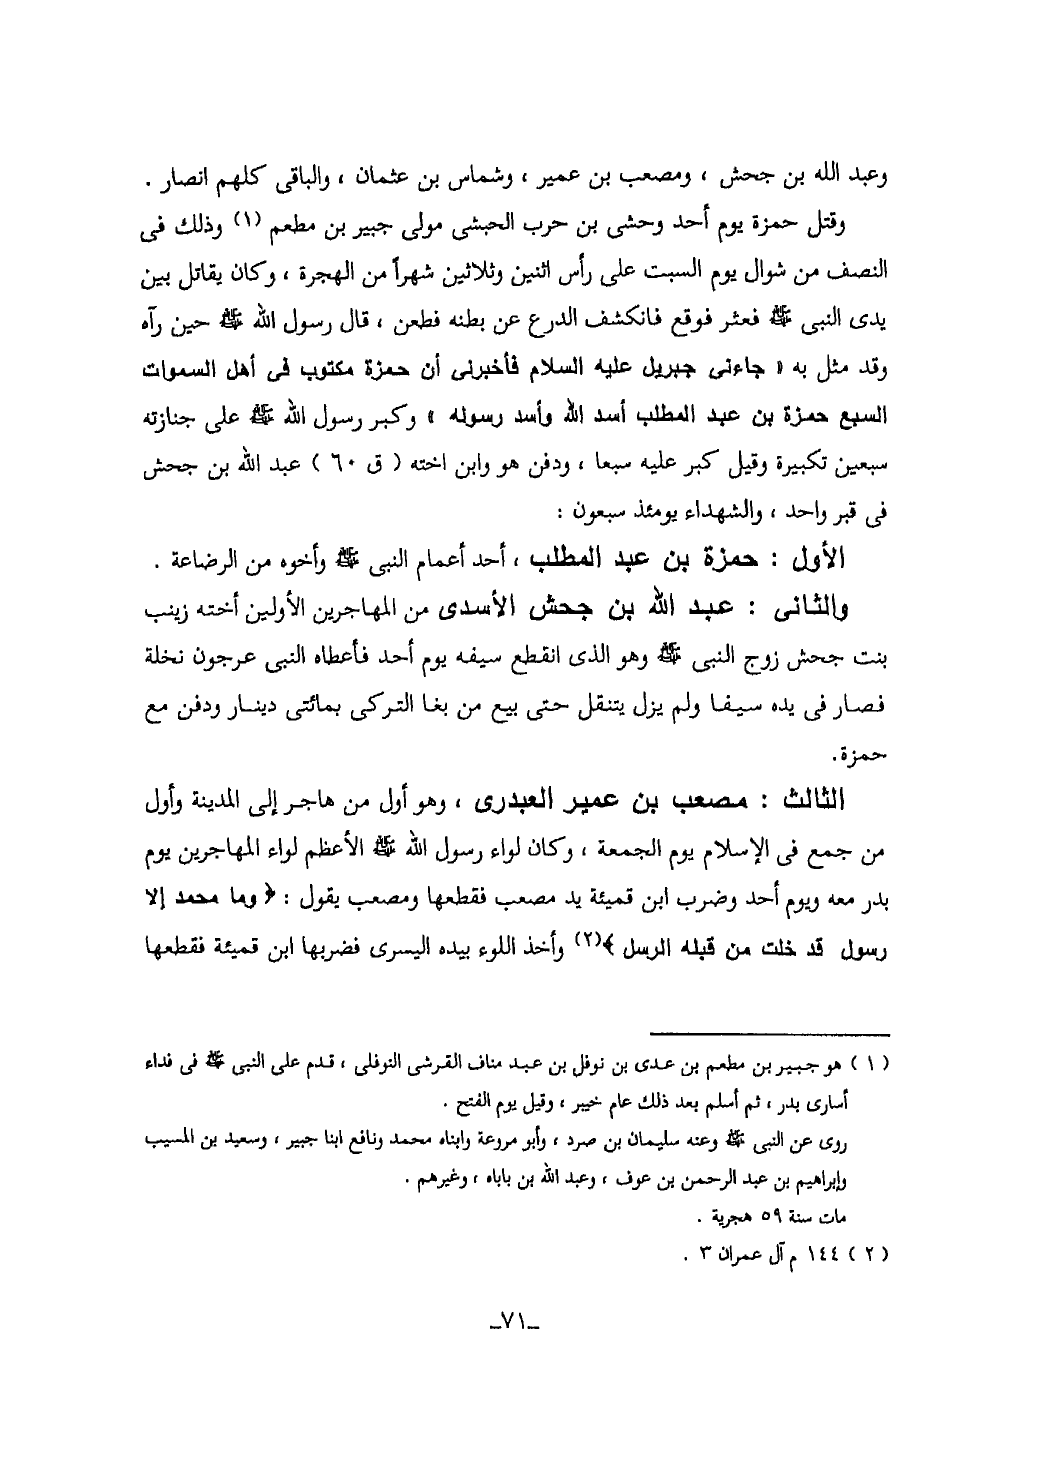 وعبد الله بن جحش ، ومصعب بن عمير ، وشماس بن عثمان ، والباقى كلهم انصار .
وقتل حمزة يوم أحد وحشى بن حرب الحبشى مولى جبير بن مطعم (١) وذلك فى
النصف من شوال يوم السبت على رأس اثنين وثلاثين شهراً من الهجرة ، وكان يقاتل بين
يدى النبى ﷺ فعثر فوقع فانكشف الدرع عن بطنه فطعن ، قال رسول الله ﷺ حين رآه
وقد مثل به « جاءنى جبريل عليه السلام فأخبرنى أن حمزة مكتوب فى أهل السموات
السبع حمزة بن عبد المطلب أسد الله وأسد رسوله » وكبر رسول الله ﷺ على جنازته
سبعين تكبيرة وقيل كبر عليه سبعا ، ودفن هو وابن اخته ( ق ٦٠ ) عبد الله بن جحش
فى قبر واحد ، والشهداء يومئذ سبعون :
الأول : حمزة بن عبد المطلب ، أحد أعمام النبى ﷺ وأخوه من الرضاعة .
والثانى : عبد الله بن جحش الأسدى من المهاجرين الأولين أخته زينب
بنت جحش زوج النبى ﷺ وهو الذى انقطع سيفه يوم أحد فأعطاه النبى عرجون نخلة
فصار فى يده سيفا ولم يزل يتنقل حتى بيع من بغا التركى بمائتى دينار ودفن مع
حمزة.
الثالث : مصعب بن عمير العبدرى ، وهو أول من هاجر إلى المدينة وأول
من جمع فى الإسلام يوم الجمعة ، وكان لواء رسول الله ﷺ الأعظم لواء المهاجرين يوم
بدر معه ويوم أحد وضرب ابن قميئة يد مصعب فقطعها ومصعب يقول : ﴿ وما محمد إلا
رسول قد خلت من قبله الرسل ﴾(٢) وأخذ اللوء بيده اليسرى فضربها ابن قميئة فقطعها
( ١ ) هو جبير بن مطعم بن عدى بن نوفل بن عبد مناف القرشى النوفلى ، قدم على النبى ﷺ فى فداء
أسارى بدر ، ثم أسلم بعد ذلك عام خيبر ، وقيل يوم الفتح .
روى عن النبى ﷺ وعنه سليمان بن صرد ، وأبو مروعة وابناه محمد ونافع ابنا جبير ، وسعيد بن المسيب
وإبراهيم بن عبد الرحمن بن عوف ، وعبد الله بن باباه ، وغيرهم .
مات سنة ٥٩ هجرية .
( ٢ ) ١٤٤ م آل عمران ٣ .
_٧١_